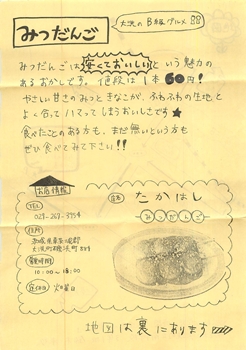 みつだんご
大洗のB級グルメ
みつだんごは安くておいしいという魅力の
あるおかしです。値段は1本60円!
やさしい甘さのみつときなこが、ふわふわの生地と
よく合ってハマってしまうおいしさです★
食べたことのある方も、まだ無いという方も
ぜひ食べてみて下さい!!
お店情報
TEL
029-267-
住所
茨城県東茨城郡
大洗町磯浜町
営業時間
10:00〜18:00
定休日 火曜日
店名 たかはし
みつだんご
地図は裏にあります